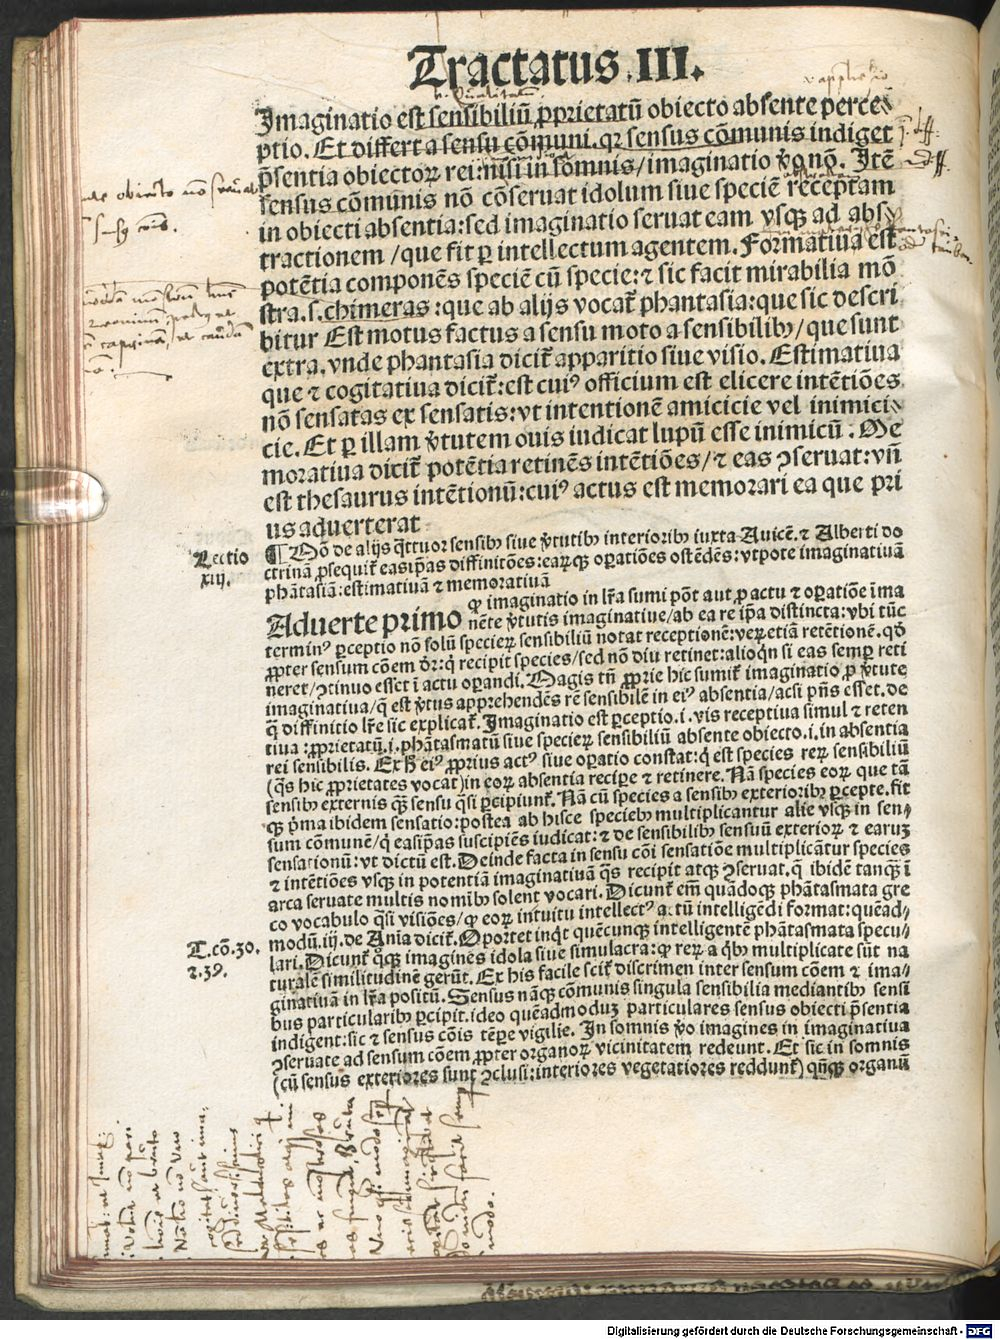 Tractatus .III.
Imaginatio est sensibiliū ꝓprietatū obiecto absente perce⸗
ptio. Et differt a sensu cōmuni. qꝛ sensus cōmunis indiget
p̄sentia obiectoꝝ rei: nisi in somnis/ imaginatio v̄o nō. Itē
sensus cōmunis nō cōseruat idolum siue speciē receptam
in obiecti absentia: sed imaginatio seruat eam vsqꝫ ad abs⸗
tractionem / que fit ꝑ intellectum agentem. Formatiua est
potētia componēs speciē cū specie: ⁊ sic facit mirabilia mō
stra. s. chimeras : que ab alijs vocat᷑ phantasia: que sic descri
bitur Est motus factus a sensu moto a sensibilibꝫ / que sunt
extra. vnde phantasia dicit᷑ apparitio siue visio. Estimatiua
que ⁊ cogitatiua dicit᷑: est cuiꝰ officium est elicere intētiōes
nō sensatas ex sensatis: vt intentionē amicicie vel inimici⸗
cie. Et ꝑ illam v̄tutem ouis iudicat lupū esse inimicū. Me
moratiua dicit᷑ potētia retinēs intētiōes/ ⁊ eas ꝯseruat: vn̄
est thesaurus intētionū: cuiꝰ actus est memorari ea que pri
us aduerterat
Lectio
xiij.
¶ Nō de alijs q̄ttuor sensibꝫ siue v̄tutibꝫ interioribꝫ iuxta Auicē. ⁊ Alberti do
ctrinā ꝓsequit᷑ easip̄as diffinitōes: earūqꝫ oꝑatiōes ostēdēs: vtpote imaginatiuā
phātasiā: estimatiuā ⁊ memoratiuā
Aduerte primo ꝙ imaginatio in lr̄a sumi pōt aut ꝓ actu ⁊ oꝑatiōe īma
nēte v̄tutis imaginatiue/ ab ea re ip̄a distincta: vbi tūc
terminꝰ ꝑceptio nō solū specieꝝ sensibiliū notat receptionē: veꝝ etiā retētionē. qd̓
ꝓpter sensum cōem d̄r: q̇ recipit species/ sed nō diu retinet: alioq̇n si eas semꝑ reti
neret/ ꝯtinuo esset ī actu oꝑandi. Magis tn̄ ꝓprie hic sumit᷑ imaginatio ꝓ v̄tute
imaginatiua/ q̄ est v̄tus apprehendēs rē sensibilē in eiꝰ absentia/ acsi p̄ns esset. de
q̄ diffinitio lr̄e sic explicat᷑. Imaginatio est ꝑceptio. i. vis receptiua simul ⁊ reten
tiua : ꝓprietatū. i. phātasmatū siue specieꝝ sensibiliū absente obiecto. i. in absentia
rei sensibilis. Ex h̄ eiꝰ ꝓprius actꝰ siue oꝑatio constat: q̇ est species reꝝ sensibiliū
(q̄s hic ꝓprietates vocat) in eoꝝ absentia reciꝑe ⁊ retinere. Nā species eoꝝ que tā
sensibꝫ externis qꝫ̄ sensu q̄si ꝑcipiunt᷑. Nā cū species a sensibꝫ exterioribꝫ ꝑcepte. fit
qꝫ p̄ma ibidem sensatio: postea ab hisce speciebꝫ multiplicantur alie vsqꝫ in sen⸗
sum cōmunē/ q̇ easip̄as suscipiēs iudicat: ⁊ de sensibilibꝫ sensuū exterioꝝ ⁊ earuꝫ
sensationū: vt dictū est. Deinde facta in sensu cōi sensatiōe multiplicātur species
⁊ intētiōes vsqꝫ in potentiā imaginatiuā q̄s recipit atqꝫ ꝯseruat. q̄ ibidē tanqꝫ̄ ī
arca seruate multis nomībꝫ solent vocari. Dicunt᷑ em̄ quādoqꝫ phātasmata gre
co vocabulo q̄si visiōes/ ꝙ eoꝝ intuitu intellectꝰ actū intelligēdi format: quēad⸗
modū. iij. de Anīa dicit᷑. Oportet inq̇t quēcunqꝫ intelligentē phātasmata specu⸗
T. cō. 30.
⁊. 39.
lari. Dicunt᷑ q̊qꝫ imagines idola siue simulacra: ꝙ reꝝ a q̇bꝫ multiplicate sūt na
turalē similitudinē gerūt. Ex his facile scit᷑ discrimen inter sensum cōem ⁊ ima⸗
ginatiuā in lr̄a positū. Sensus nāqꝫ cōmunis singula sensibilia mediantibꝫ sensi
bus particularibꝫ ꝑcipit. ideo quēadmoduꝫ particulares sensus obiecti p̄sentia
indigent: sic ⁊ sensus cōis tēꝑe vigilie. In somnis v̄o imagines in imaginatiua
ꝯseruate ad sensum cōem ꝓpter organoꝝ vicinitatem redeunt. Et sic in somnis
(cū sensus exteriores sunt ꝯclusi: interiores vegetatiores reddunt᷑) qn̄qꝫ organū
Digitalisierung gefördert durch die Deutsche Forschungsgemeinschaft - DFG